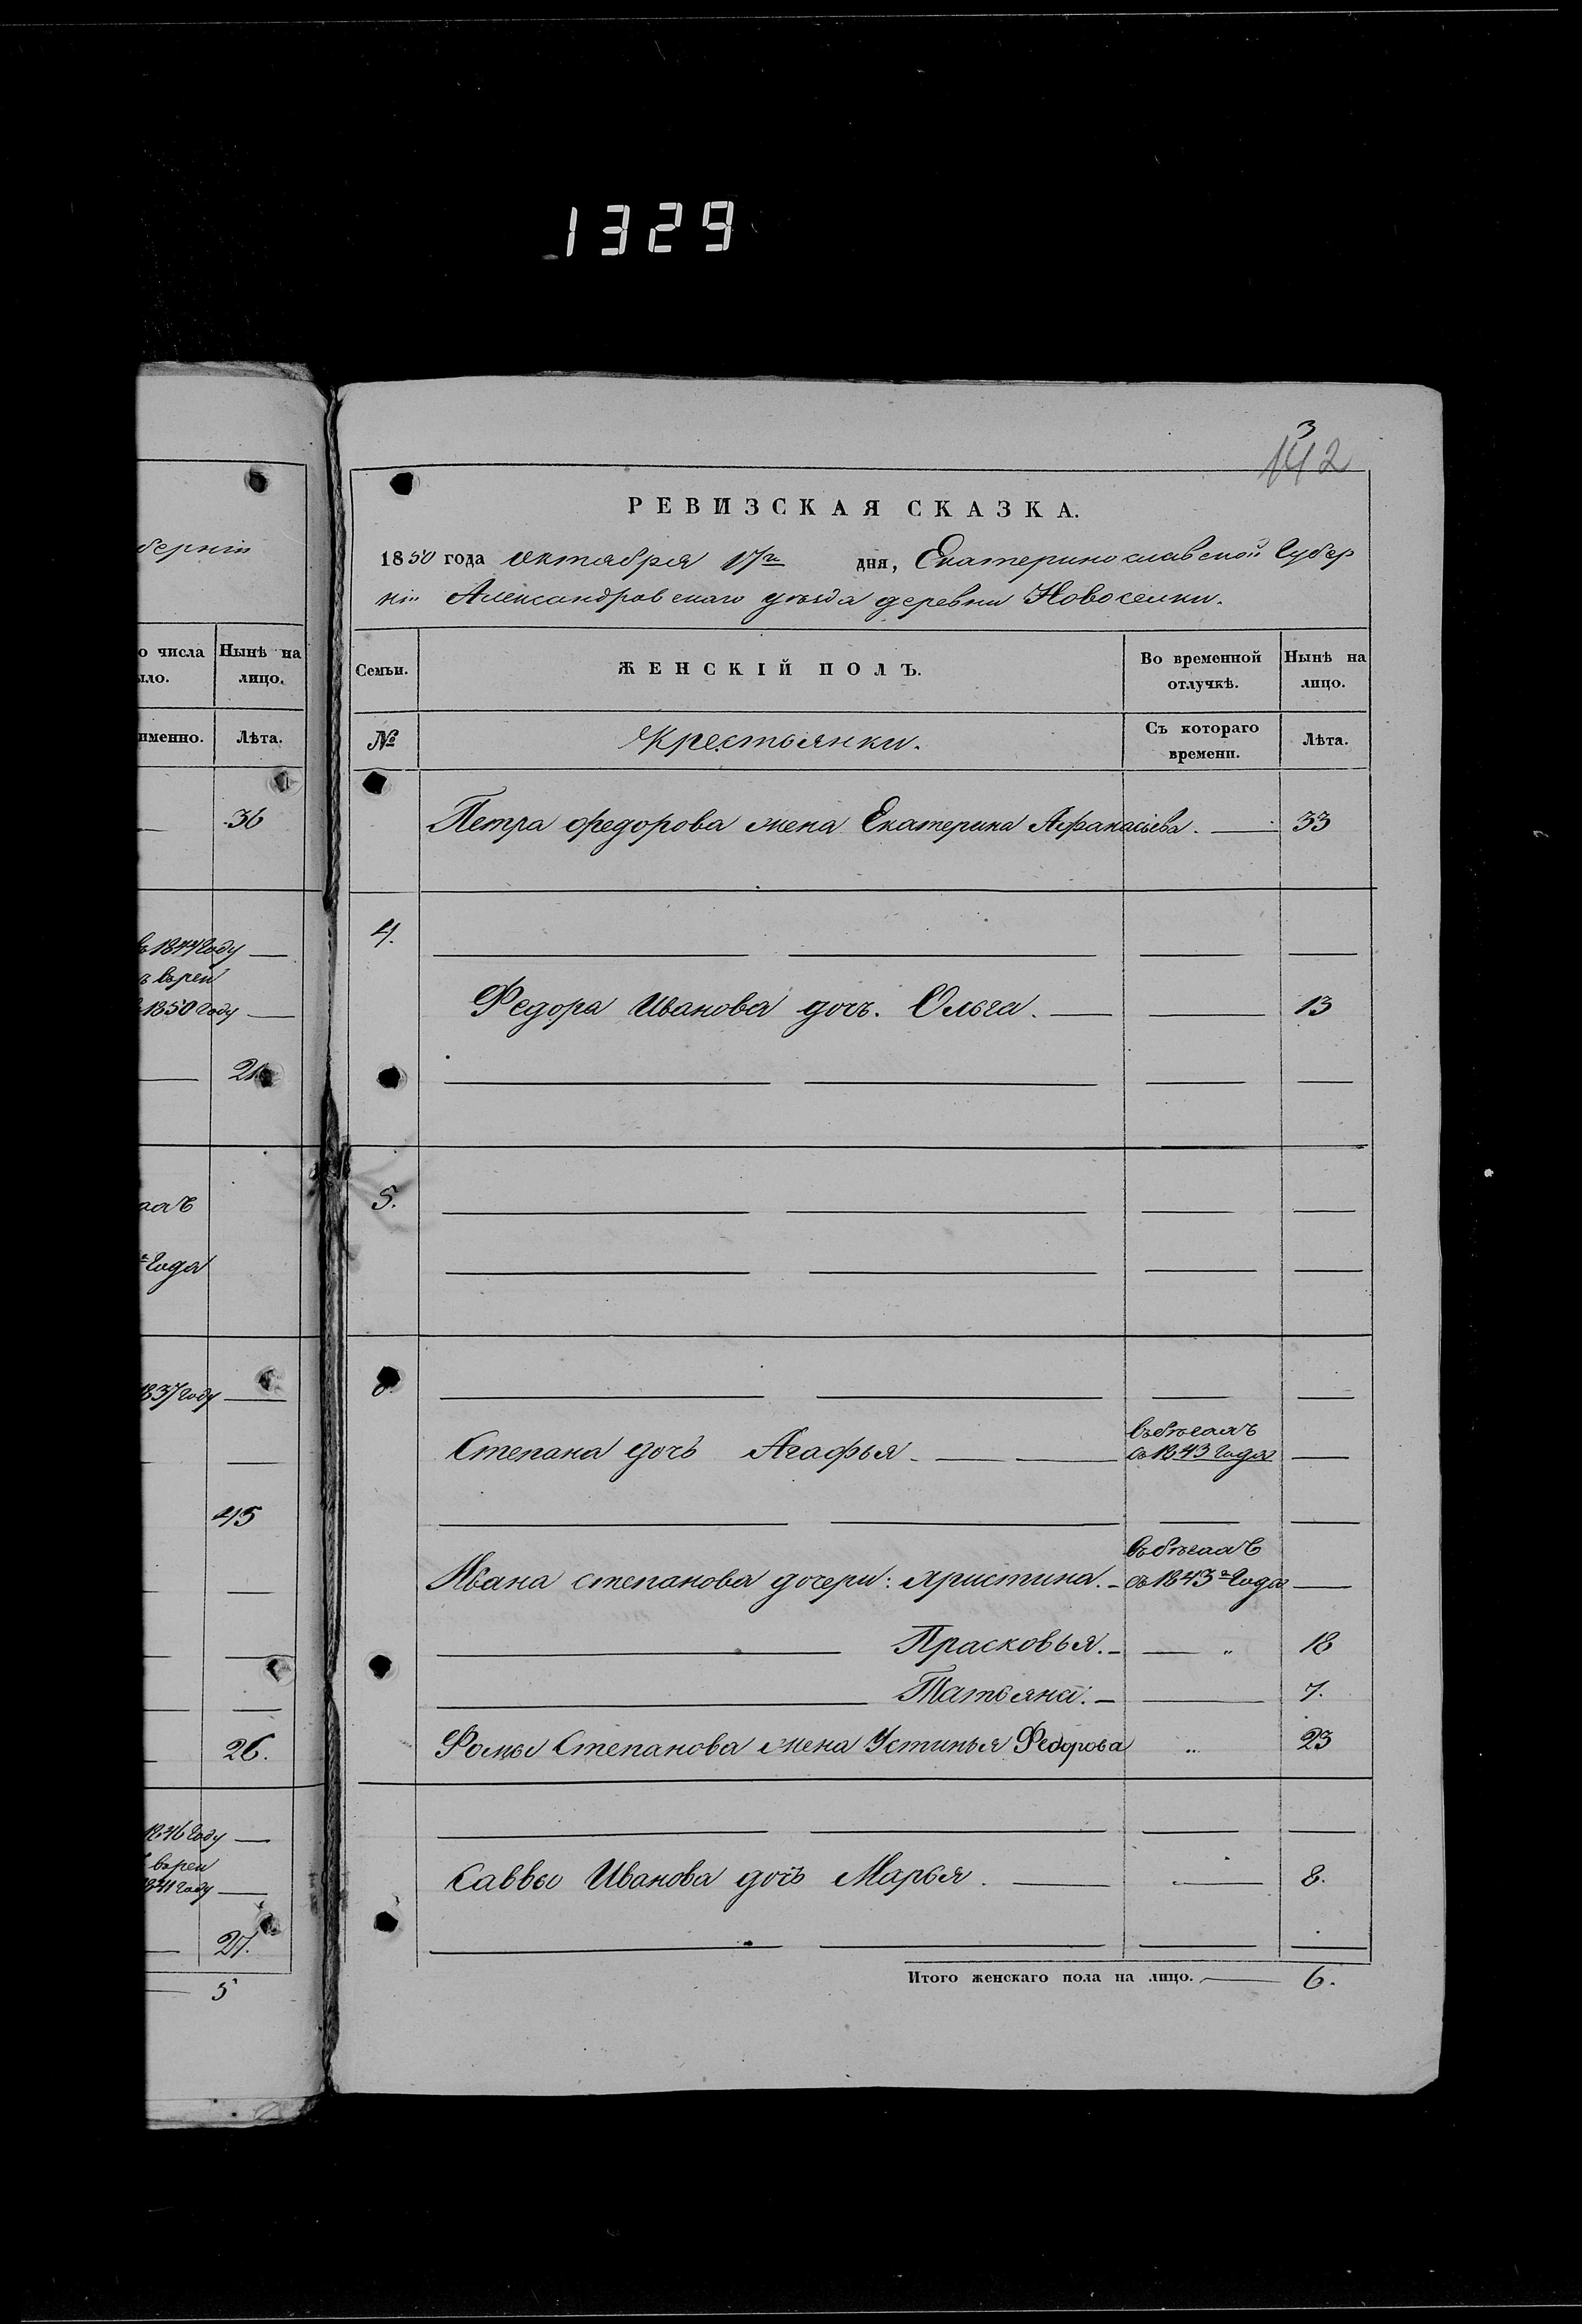 1329
3
142
берніи
о числа Нынѣ на
ыло. лицо.
именно. Лѣта.
36
въ 1844 году
1850 году
года
1837 году
45
26.
1846 году
27.
5
РЕВИЗСКАЯ СКАЗКА.
1850 года октября 17го дня, Екатеринославской Губер
ніи Александровскаго уѣзда деревни Новоселки.
Семьи. ЖЕНСКІЙ ПОЛЪ. Во временной отлучкѣ. Нынѣ на лицо.
№ Крестьянки. Съ котораго времени. Лѣта.
Петра Федорова жена Екатерина Афанасьева. 33
4.
Федора Иванова дочь. Ольга. 13
5.
6.
Степана дочь Агафья въ бѣгахъ съ 1843 года
въ бѣгахъ
Ивана Степанова дочери: Христина. съ 1843го года
Прасковья. " 18
Татьяна. 7.
Фомы Степанова жена Устинья Федорова " 23
Саввы Иванова дочь Марья. 8.
Итого женскаго пола на лицо. 6.